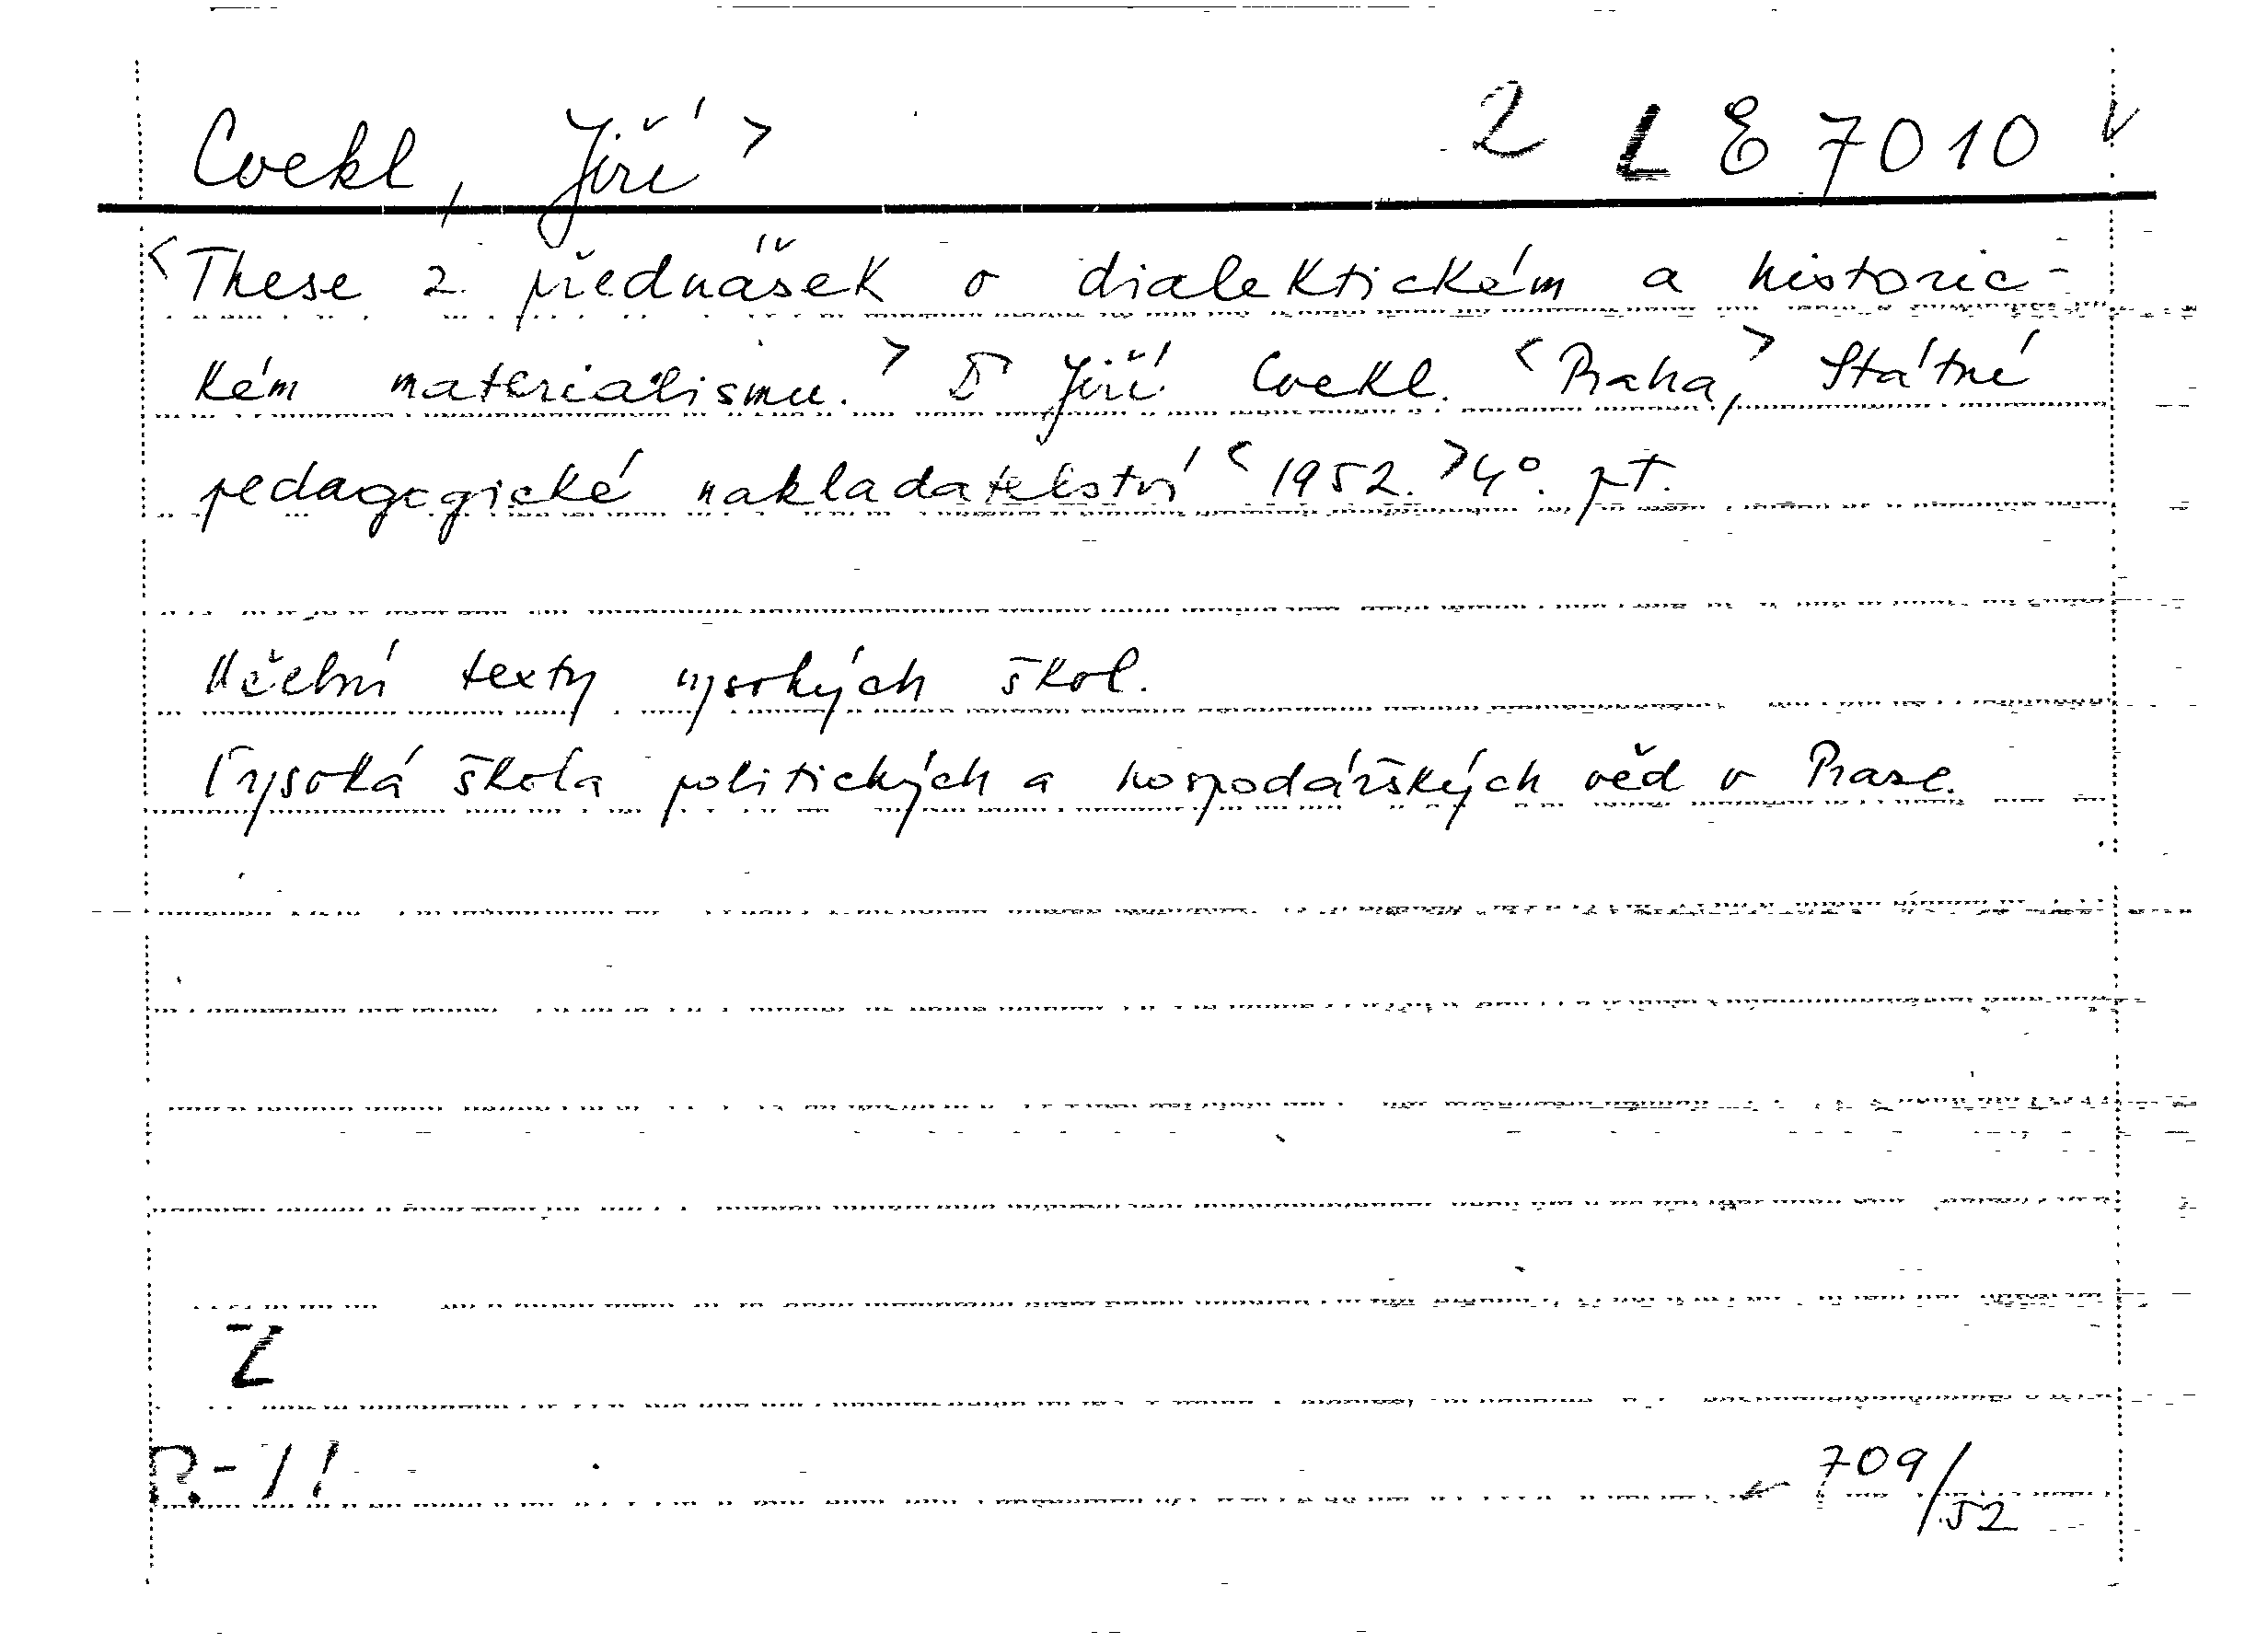 Cvekl, Jiří > 2 L E 7010 v
<These z přednášek o dialektickém a historic-
kém materialismu.> Dr Jiří Cvekl. <Praha,> Státní
pedagogické nakladatelství <1952.> 4°. pt.
Učební texty vysokých škol.
Vysoká škola politických a hospodářských věd v Praze.
Z
P.-11 709/52